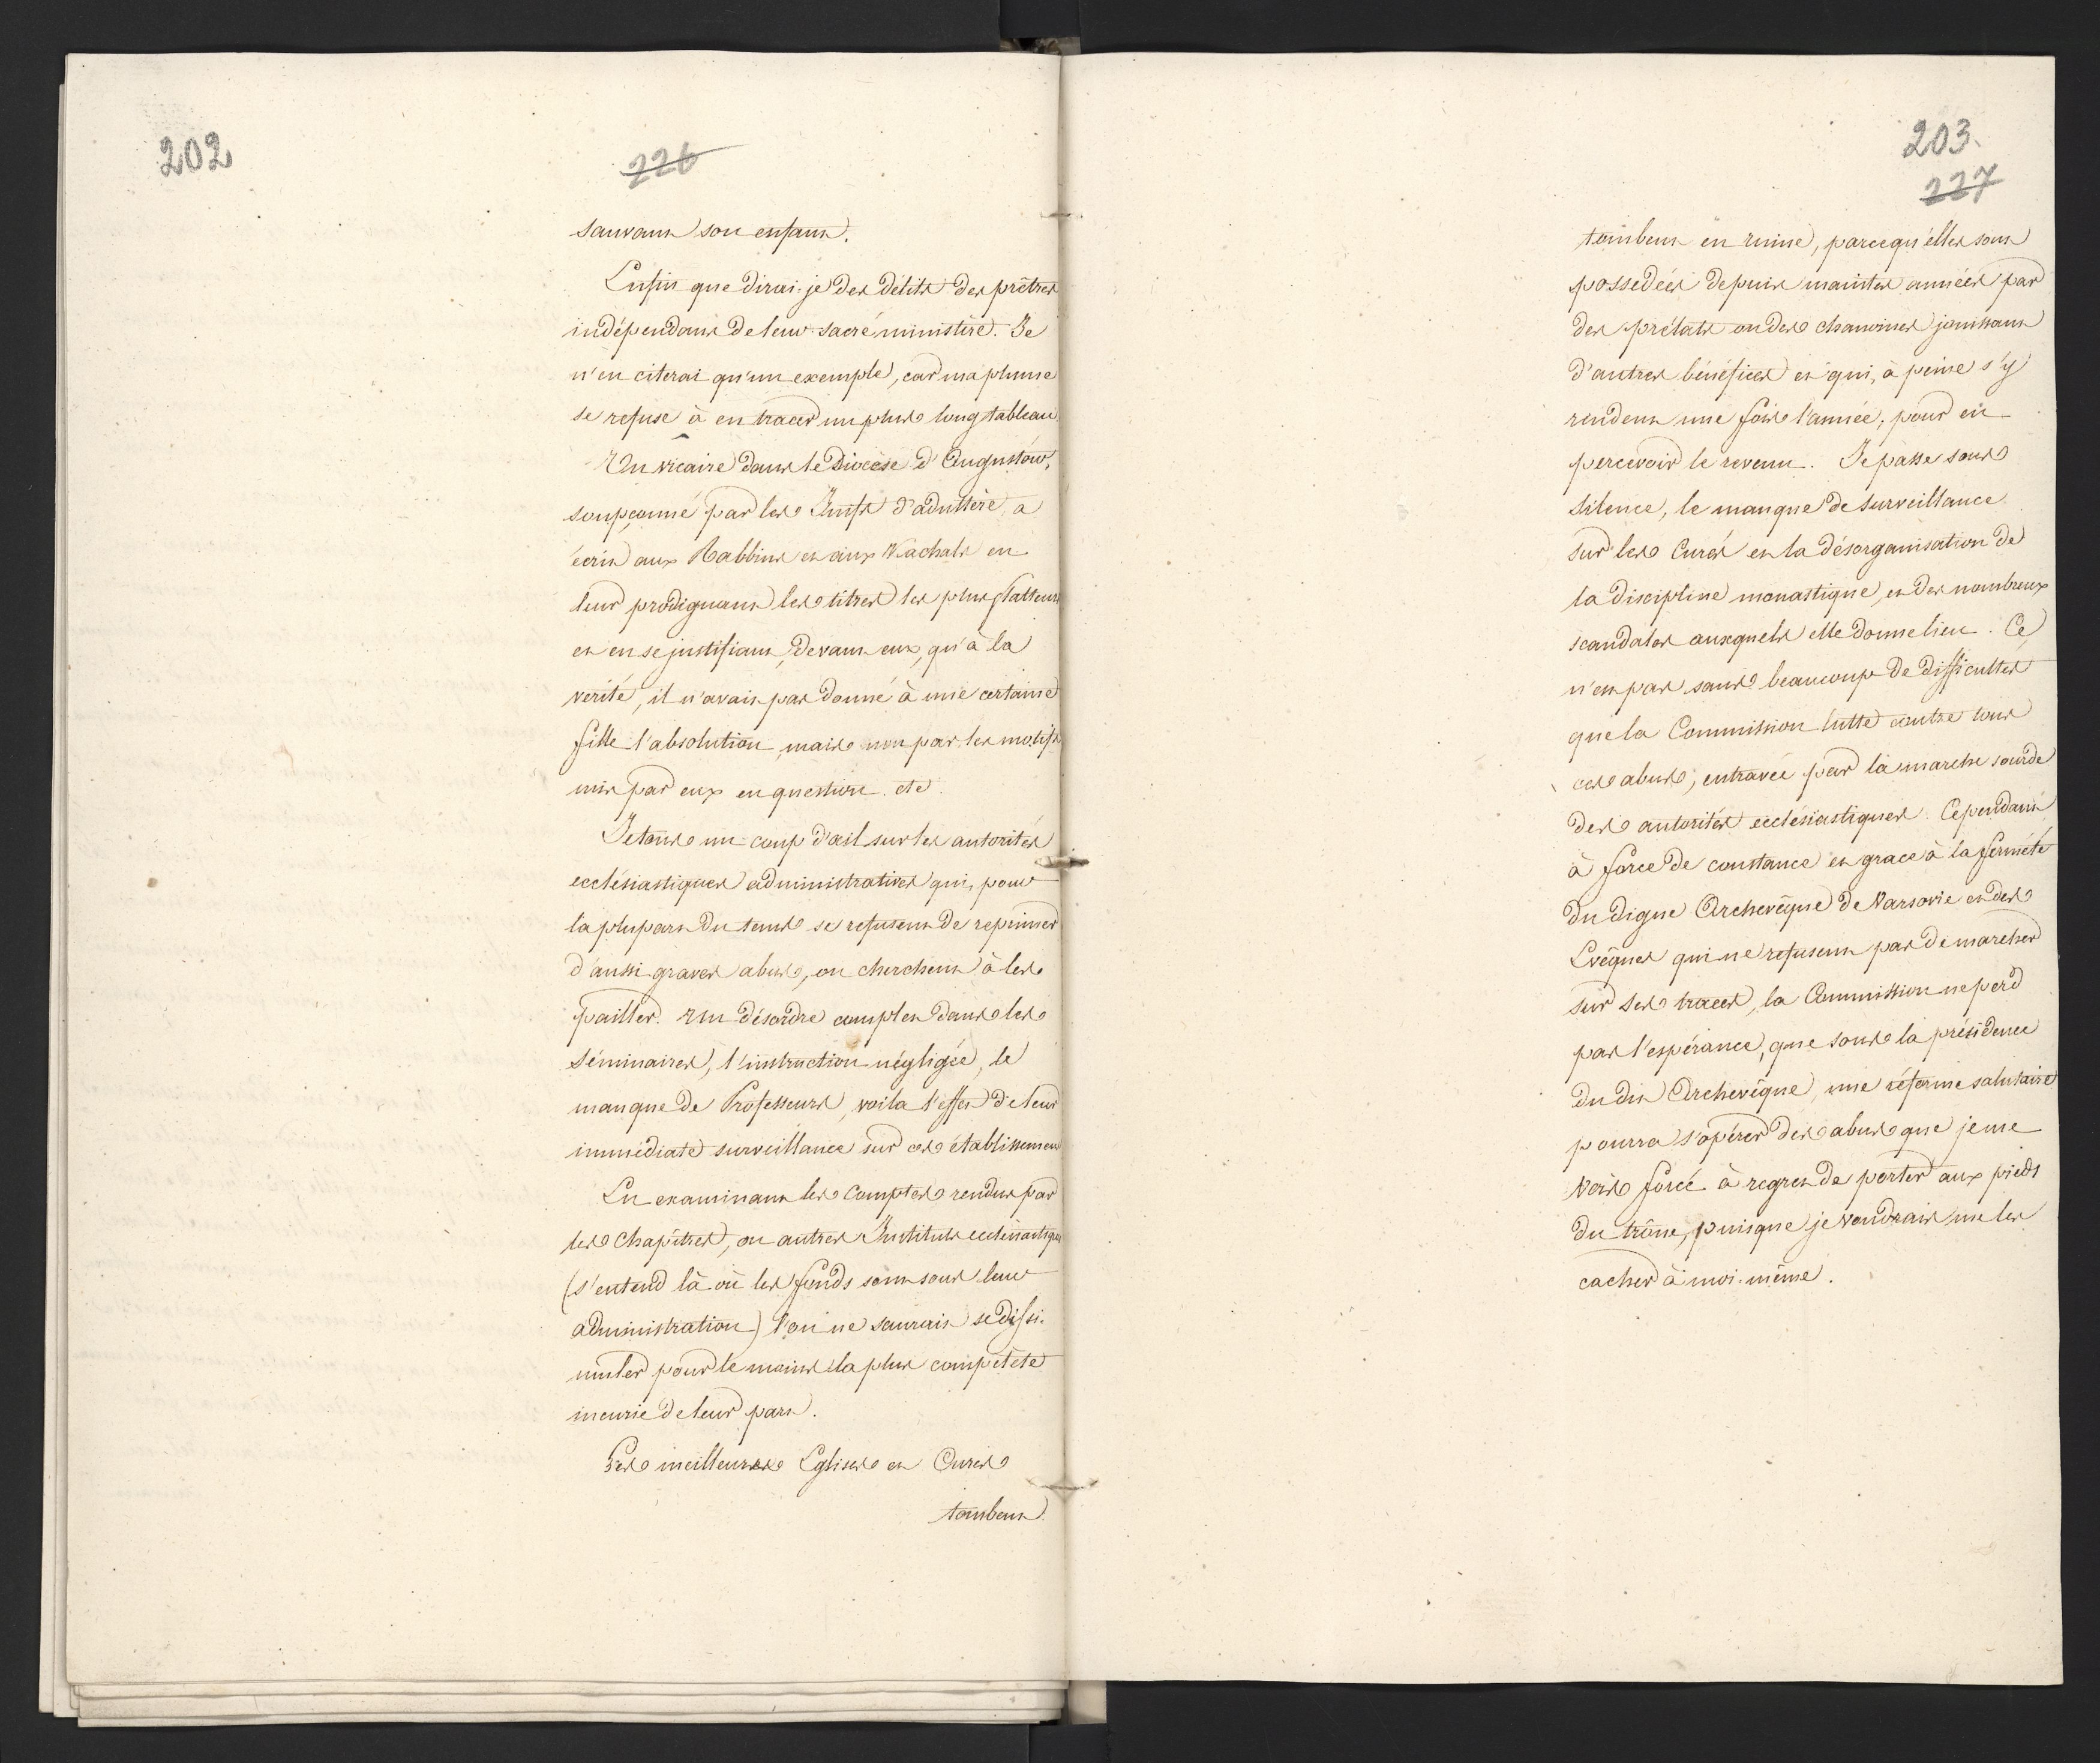 202
226
sauvant son enfant.
Enfin que dirai-je des délits des prêtres
indépendans de leur sacré ministère. Je
n'en citerai qu'un exemple, car ma plume
se refuse à en tracer un plus long tableau.
Un vicaire dans le Diocèse d'Augustów,
soupçonné par les Juifs d'adultère, a
écrit aux Rabbins et aux Kachals en
leur prodiguant les titres les plus flatteurs
et en se justifiant, devant eux, qu'à la
verité, il n'avait pas donné à une certaine
fille l'absolution, mais non par les motifs
mis par eux en question. etc.
Jetons un coup d'œil sur les autorités
ecclésiastiques administratives qui, pour
la plupart du tems se refusent de reprimer
d'aussi graves abus, ou cherchent à les
pallier. Un désordre complet dans les
Séminaires, l'instruction négligée, le
manque de Professeurs, voila l'effet de leur
immédiate surveillance sur ces établissemens
En examinant les comptes rendus par
les Chapitres, ou autres Instituts ecclésiastiques
(s'entend là où les fonds sont sous leur
administration) l'on ne saurait se dissi-
muler pour le moins la plus compètéte
incurie de leur part.
Les meilleures Eglises et Cures
tombent
203.
227
tombent en ruine, parcequ'elles sont
possedées depuis maintes années par
des prélats ou des chanoines jouissant
d'autres bénéfices et qui, à peine s'y
rendent une fois l'année, pour en
percevoir le revenu. Je passe sous
silence, le manque de surveillance
sur les Curés et la désorganisation de
la discipline monastique, et des nombreux
scandales auxquels elle donne lieu. Ce
n'est pas sans beaucoup de difficultés
que la Commission lutte contre tous
ces abus, entravée par la marche sourde
des autorités ecclésiastiques. Cependant
à force de constance et grace à la fermété
du digne Archevêque de Varsovie et des
Evêques qui ne refusent pas de marcher
sur ses traces, la Commission ne perd
pas l'espérance, que sous la présidence
du dit Archevêque, une réforme salutaire
pourra s'opérer des abus que je me
vois forcé à regret de porter aux pieds
du trône, puisque je voudrais me les
cacher à moi-même.